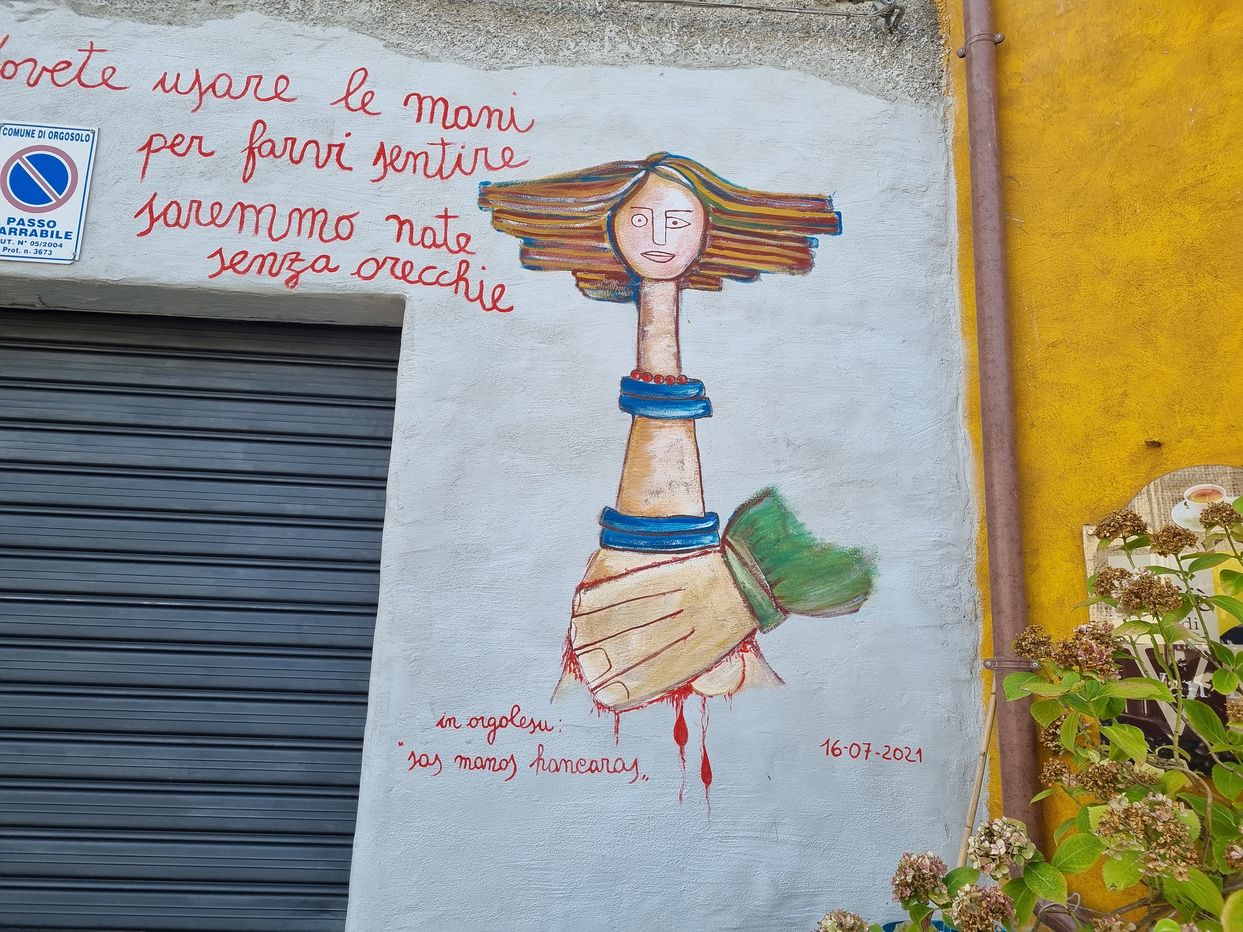 dovete usare le mani
per farvi sentire
saremmo nate
senza orecchie
COMUNE DI ORGOSOLO
PASSO
ARRABILE
UT. N° 05/2004
Prot. n. 3673
in orgolesu:
"sas manos hancaras„
16-07-2021
di